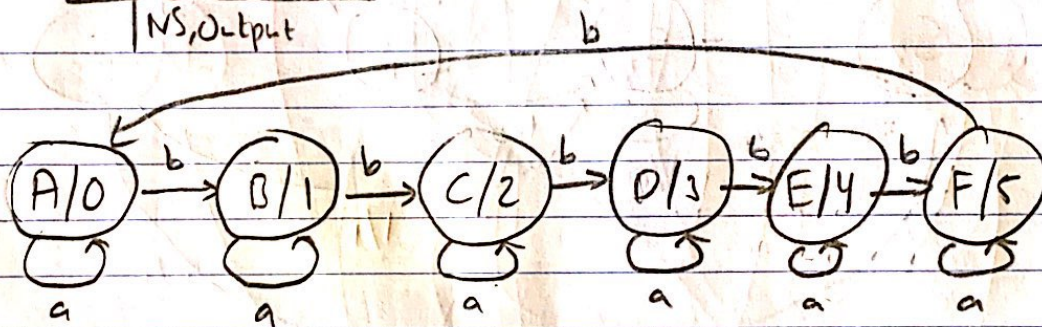 NS,Output
b
A/0 b B/1 b C/2 b D/3 b E/4 b F/5
a a a a a a